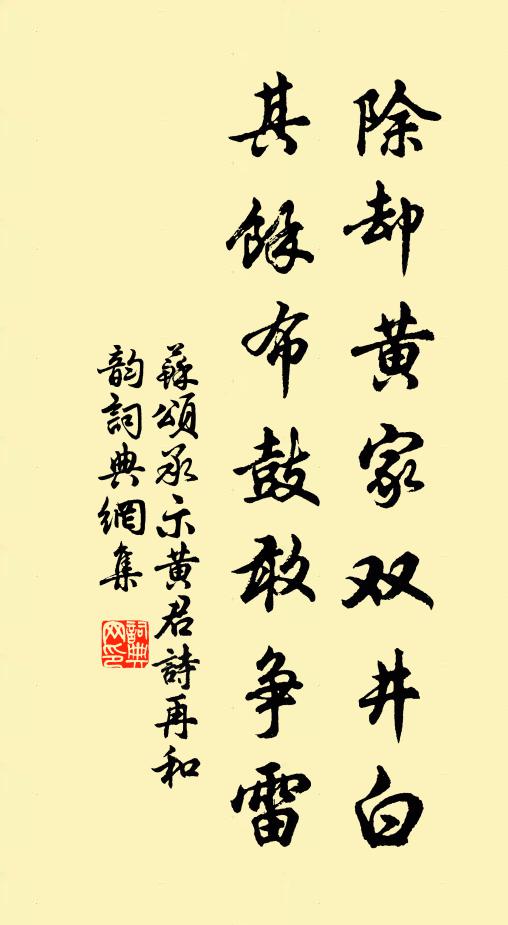 除却黄家双井白
其餘布鼓敢争雷
蘇頌承示黄君詩再和
韵詞典網集
詞典網印